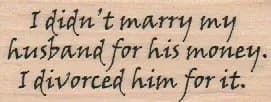 I didn't marry my
husband for his money.
I divorced him for it.